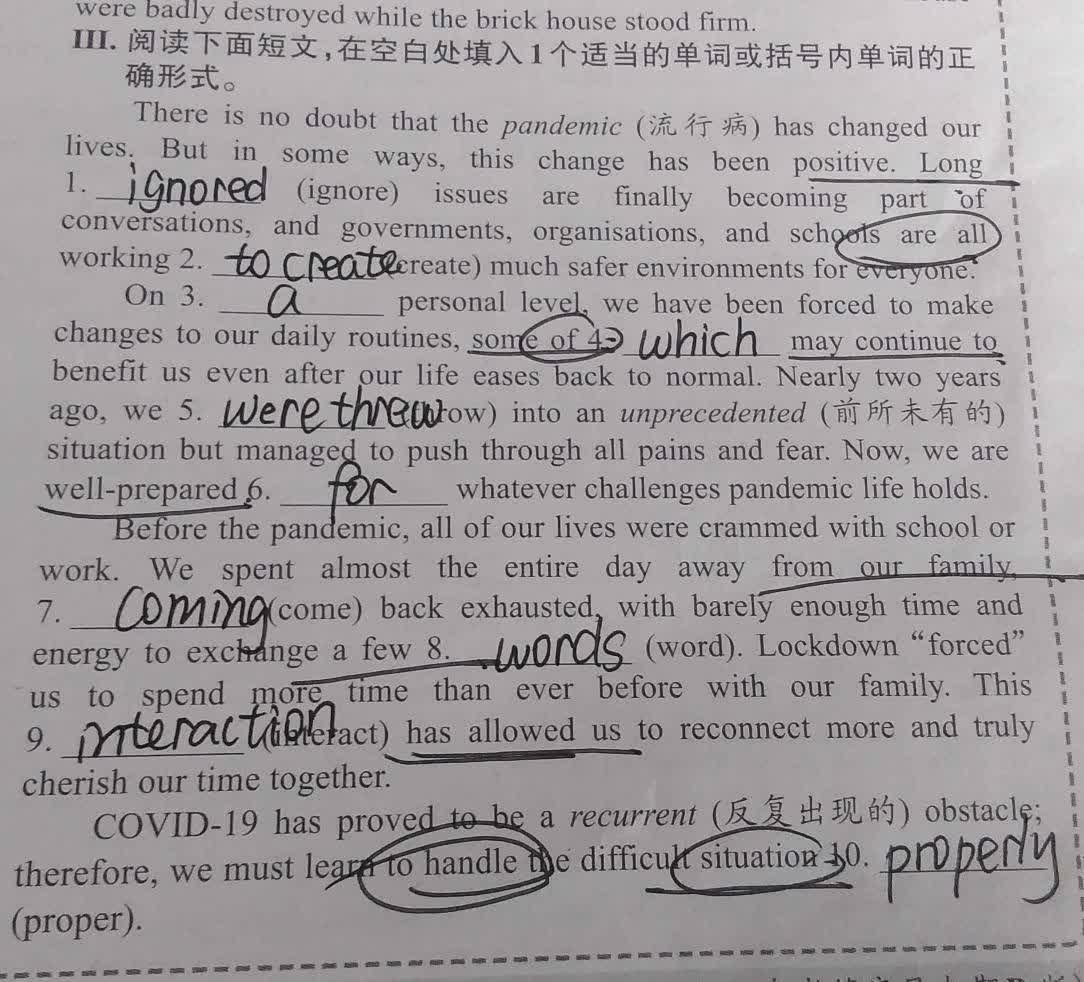 were badly destroyed while the brick house stood firm.
III. 阅读下面短文,在空白处填入1个适当的单词或括号内单词的正
确形式。
There is no doubt that the pandemic (流行病) has changed our
lives. But in some ways, this change has been positive. Long
1. ignored (ignore) issues are finally becoming part of
conversations, and governments, organisations, and schools are all
working 2. to create (create) much safer environments for everyone.
On 3. a personal level, we have been forced to make
changes to our daily routines, some of 4. which may continue to
benefit us even after our life eases back to normal. Nearly two years
ago, we 5. were threw (throw) into an unprecedented (前所未有的)
situation but managed to push through all pains and fear. Now, we are
well-prepared 6. for whatever challenges pandemic life holds.
Before the pandemic, all of our lives were crammed with school or
work. We spent almost the entire day away from our family,
7. coming (come) back exhausted, with barely enough time and
energy to exchange a few 8. words (word). Lockdown “forced”
us to spend more time than ever before with our family. This
9. interaction (interact) has allowed us to reconnect more and truly
cherish our time together.
COVID-19 has proved to be a recurrent (反复出现的) obstacle;
therefore, we must learn to handle the difficult situation 10. properly
(proper).